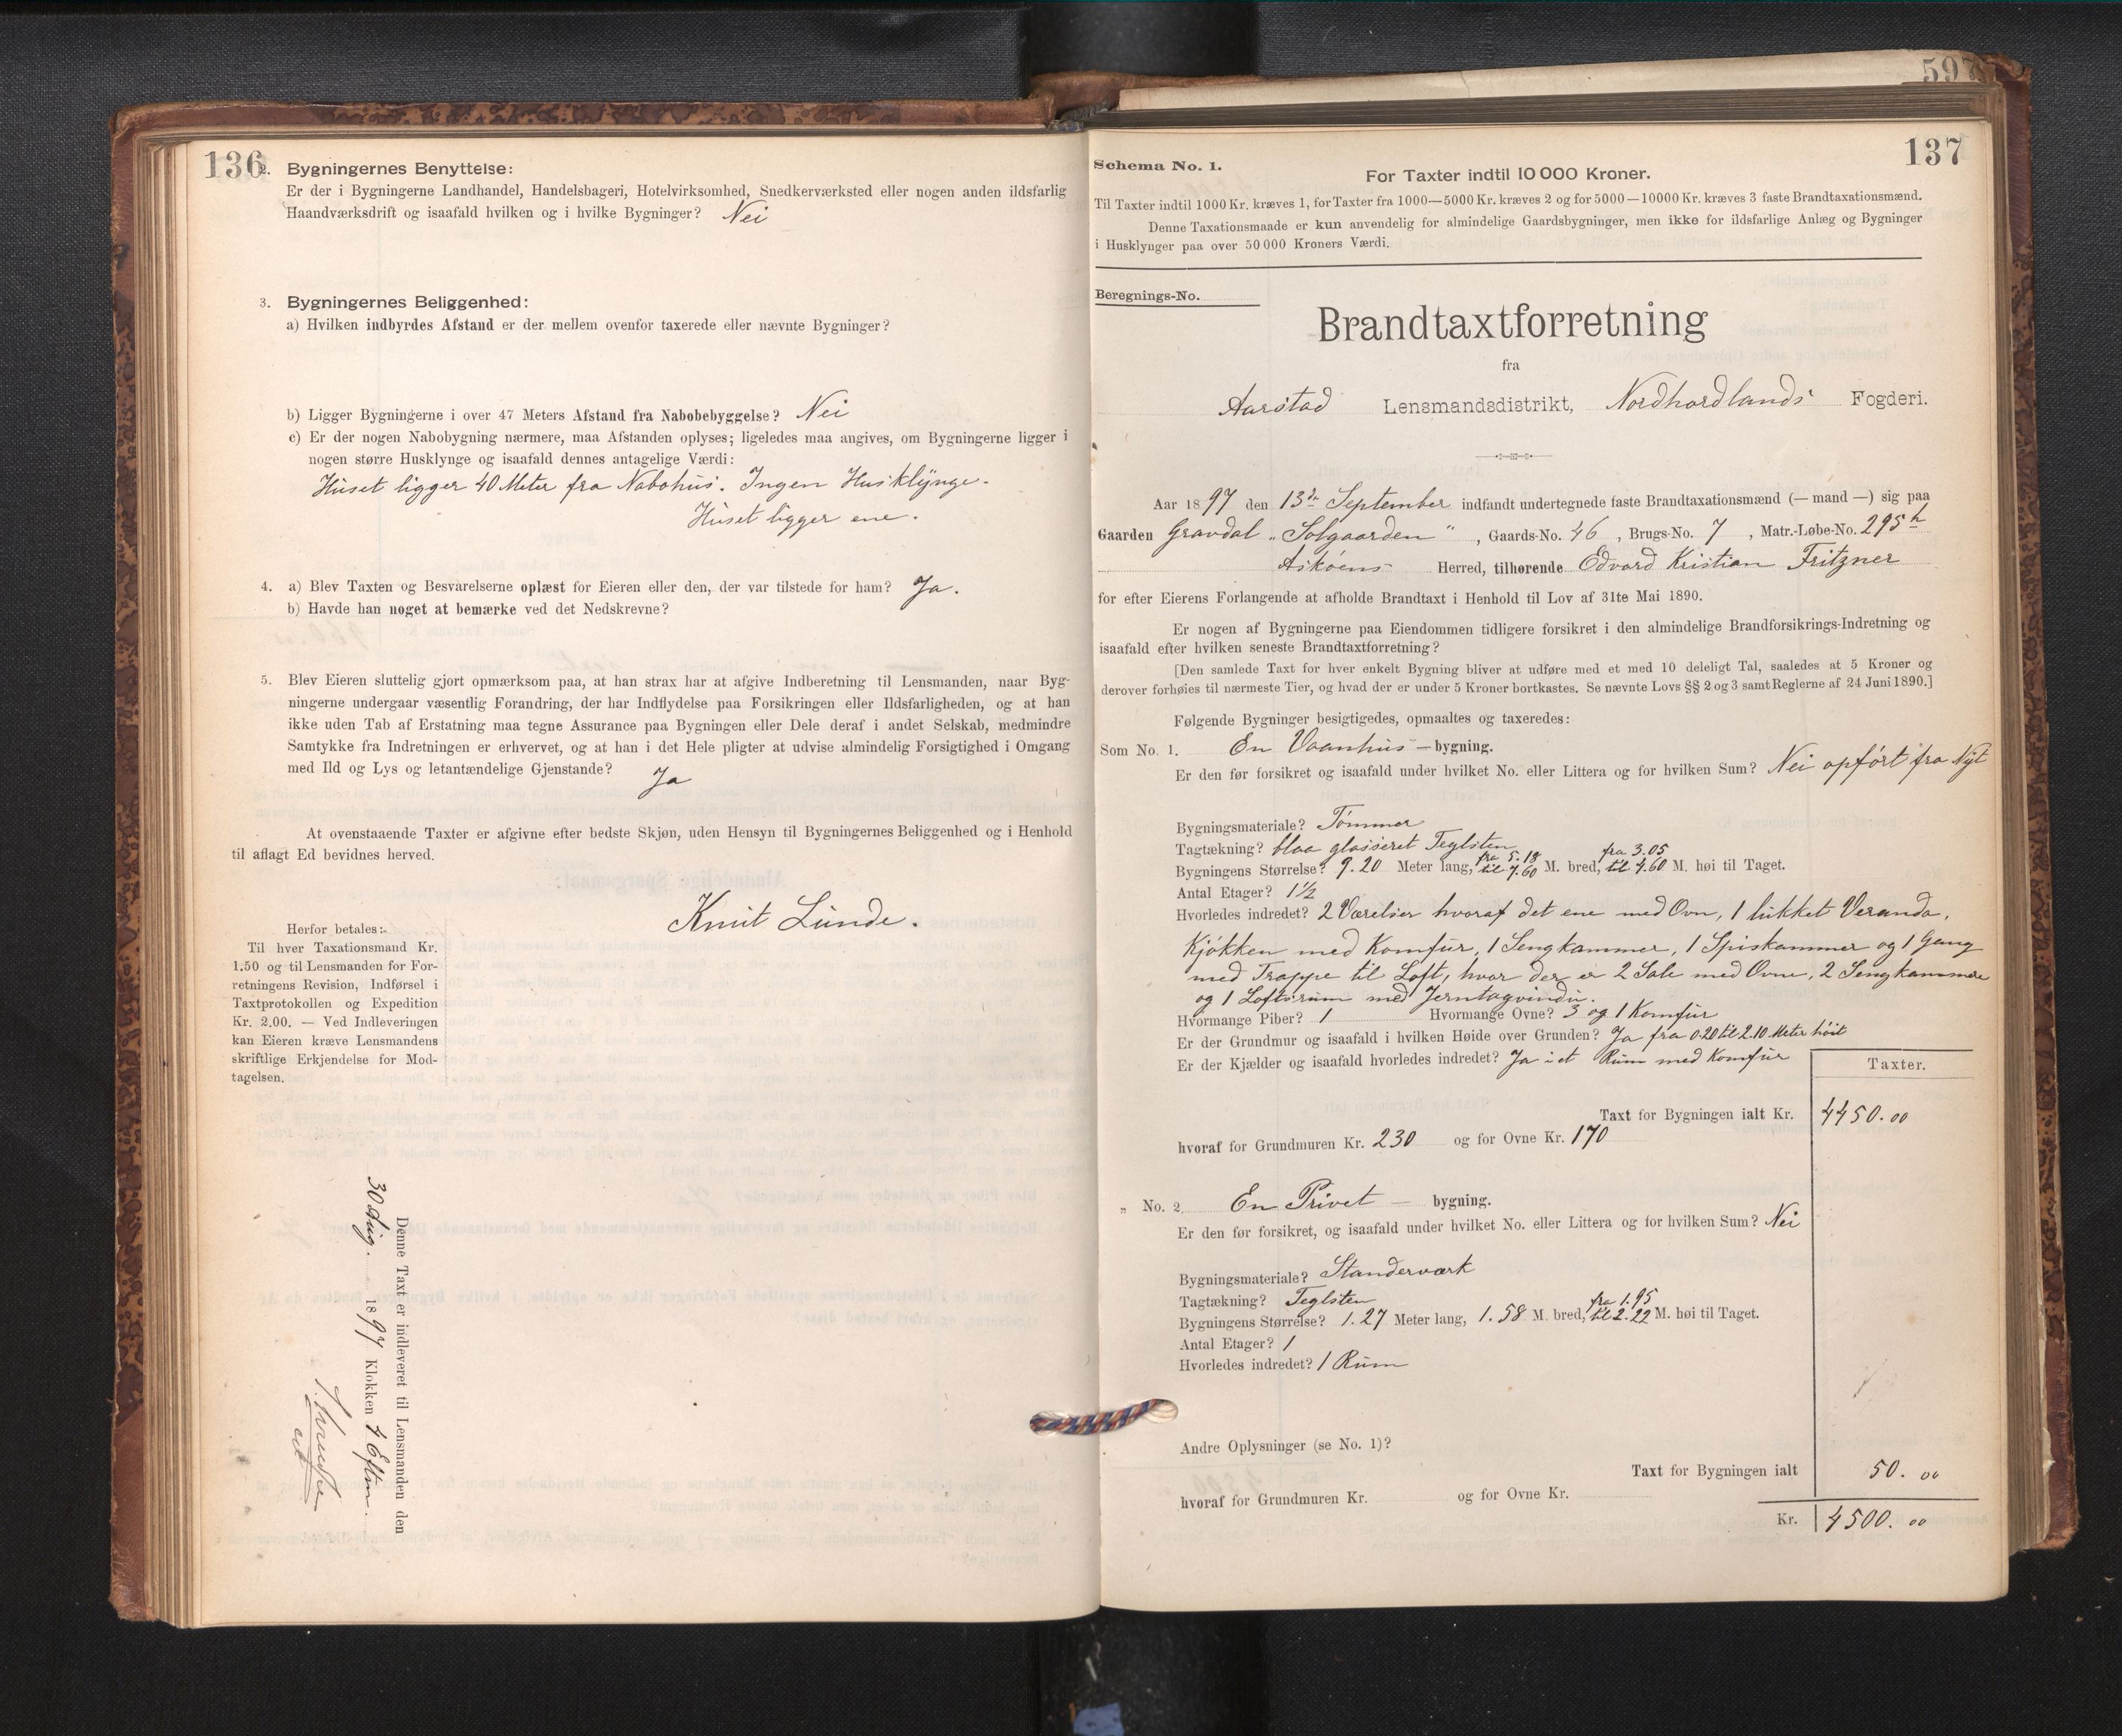 136
2. Bygningernes Benyttelse:
Er der i Bygningerne Landhandel, Handelsbageri, Hotelvirksomhed, Snedkerværksted eller nogen anden ildsfarlig
Haandværksdrift og isaafald hvilken og i hvilke Bygninger? Nei
3. Bygningernes Beliggenhed:
a) Hvilken indbyrdes Afstand er der mellem ovenfor taxerede eller nævnte Bygninger?
b) Ligger Bygningerne i over 47 Meters Afstand fra Nabobebyggelse? Nei
c) Er der nogen Nabobygning nærmere, maa Afstanden oplyses; ligeledes maa angives, om Bygningerne ligger i
nogen større Husklynge og isaafald dennes antagelige Værdi:
Huset ligger 40 Meter fra Nabohus. Ingen Husklynge.
Huset ligger ene.
4. a) Blev Taxten og Besvarelserne oplæst for Eieren eller den, der var tilstede for ham? Ja.
b) Havde han noget at bemærke ved det Nedskrevne?
5. Blev Eieren sluttelig gjort opmærksom paa, at han strax har at afgive Indberetning til Lensmanden, naar Byg-
ningerne undergaar væsentlig Forandring, der har Indflydelse paa Forsikringen eller Ildsfarligheden, og at han
ikke uden Tab af Erstatning maa tegne Assurance paa Bygningen eller Dele deraf i andet Selskab, medmindre
Samtykke fra Indretningen er erhvervet, og at han i det Hele pligter at udvise almindelig Forsigtighed i Omgang
med Ild og Lys og letantændelige Gjenstande? Ja
At ovenstaaende Taxter er afgivne efter bedste Skjøn, uden Hensyn til Bygningernes Beliggenhed og i Henhold
til aflagt Ed bevidnes herved.
Knut Lunde.
Herfor betales:
Til hver Taxationsmand Kr.
1.50 og til Lensmanden for For-
retningens Revision, Indførsel i
Taxtprotokollen og Expedition
Kr. 2.00. — Ved Indleveringen
kan Eieren kræve Lensmandens
skriftlige Erkjendelse for Mod-
tagelsen.
Denne Taxt er indleveret til Lensmanden den
30 Aug. 1897 Klokken 4 Eftm.
597
137
Schema No. 1.
For Taxter indtil 10000 Kroner.
Til Taxter indtil 1000 Kr. kræves 1, for Taxter fra 1000—5000 Kr. kræves 2 og for 5000—10000 Kr. kræves 3 faste Brandtaxationsmænd.
Denne Taxationsmaade er kun anvendelig for almindelige Gaardsbygninger, men ikke for ildsfarlige Anlæg og Bygninger
i Husklynger paa over 50000 Kroners Værdi.
Beregnings-No.
Brandtaxtforretning
fra
Aarstad Lensmandsdistrikt, Nordhordlands Fogderi.
Aar 1897 den 13de September indfandt undertegnede faste Brandtaxationsmænd (— mand —) sig paa
Gaarden Gravdal „Solgaarden", Gaards-No. 46, Brugs-No. 7, Matr.-Løbe-No. 295 h
Askøens Herred, tilhørende Edvard Kristian Fritzner
for efter Eierens Forlangende at afholde Brandtaxt i Henhold til Lov af 31te Mai 1890.
Er nogen af Bygningerne paa Eiendommen tidligere forsikret i den almindelige Brandforsikrings-Indretning og
isaafald efter hvilken seneste Brandtaxtforretning?
[Den samlede Taxt for hver enkelt Bygning bliver at udføre med et med 10 deleligt Tal, saaledes at 5 Kroner og
derover forhøies til nærmeste Tier, og hvad der er under 5 Kroner bortkastes. Se nævnte Lovs §§ 2 og 3 samt Reglerne af 24 Juni 1890.]
Følgende Bygninger besigtigedes, opmaaltes og taxeredes:
Som No. 1. En Vaanhus — bygning.
Er den før forsikret og isaafald under hvilket No. eller Littera og for hvilken Sum? Nei opført fra Nyt
Bygningsmateriale? Tømmer
Tagtækning? blaa glasseret Teglsten
Bygningens Størrelse? 9.20 Meter lang, fra 5.18 til 7.60 M. bred, fra 3.05 til 4.60 M. høi til Taget.
Antal Etager? 1½
Hvorledes indredet? 2 Værelser hvoraf det ene med Ovn, 1 lukket Veranda,
Kjøkken med Komfur, 1 Sengkammer, 1 Spiskammer og 1 Gang
med Trappe til Loft, hvor der er 2 Sale med Ovne, 2 Sengkammere
og 1 Loftsrum med Jerntagvindu.
Hvormange Piber? 1 Hvormange Ovne? 3 og 1 Komfur
Er der Grundmur og isaafald i hvilken Høide over Grunden? Ja fra 0.20 til 2.10 Meter høit
Er der Kjælder og isaafald hvorledes indredet? Ja i et Rum med Komfur
Taxter.
Taxt for Bygningen ialt Kr. 4450.00
hvoraf for Grundmuren Kr. 230 og for Ovne Kr. 170
„ No. 2 En Privet — bygning.
Er den før forsikret, og isaafald under hvilket No. eller Littera og for hvilken Sum? Nei
Bygningsmateriale? Standerværk
Tagtækning? Teglsten
Bygningens Størrelse? 1.27 Meter lang, 1.58 M. bred, fra 1.95 til 2.22 M. høi til Taget.
Antal Etager? 1
Hvorledes indredet? 1 Rum
Andre Oplysninger (se No. 1)?
Taxt for Bygningen ialt 50.00
hvoraf for Grundmuren Kr. og for Ovne Kr.
Kr. 4500.00